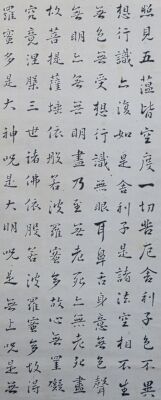 照見五蘊皆空度一切苦厄舍利子色不異
想行識亦復如是舍利子是諸法空相不生
無色無受想行識無眼耳鼻舌身意無色聲
無明亦無無明盡乃至無老死亦無老死盡
故菩提薩埵依般若波羅蜜多故心無罣礙
究竟涅槃三世諸佛依般若波羅蜜多故得
羅蜜多是大神呪是大明呪是無上呪是無